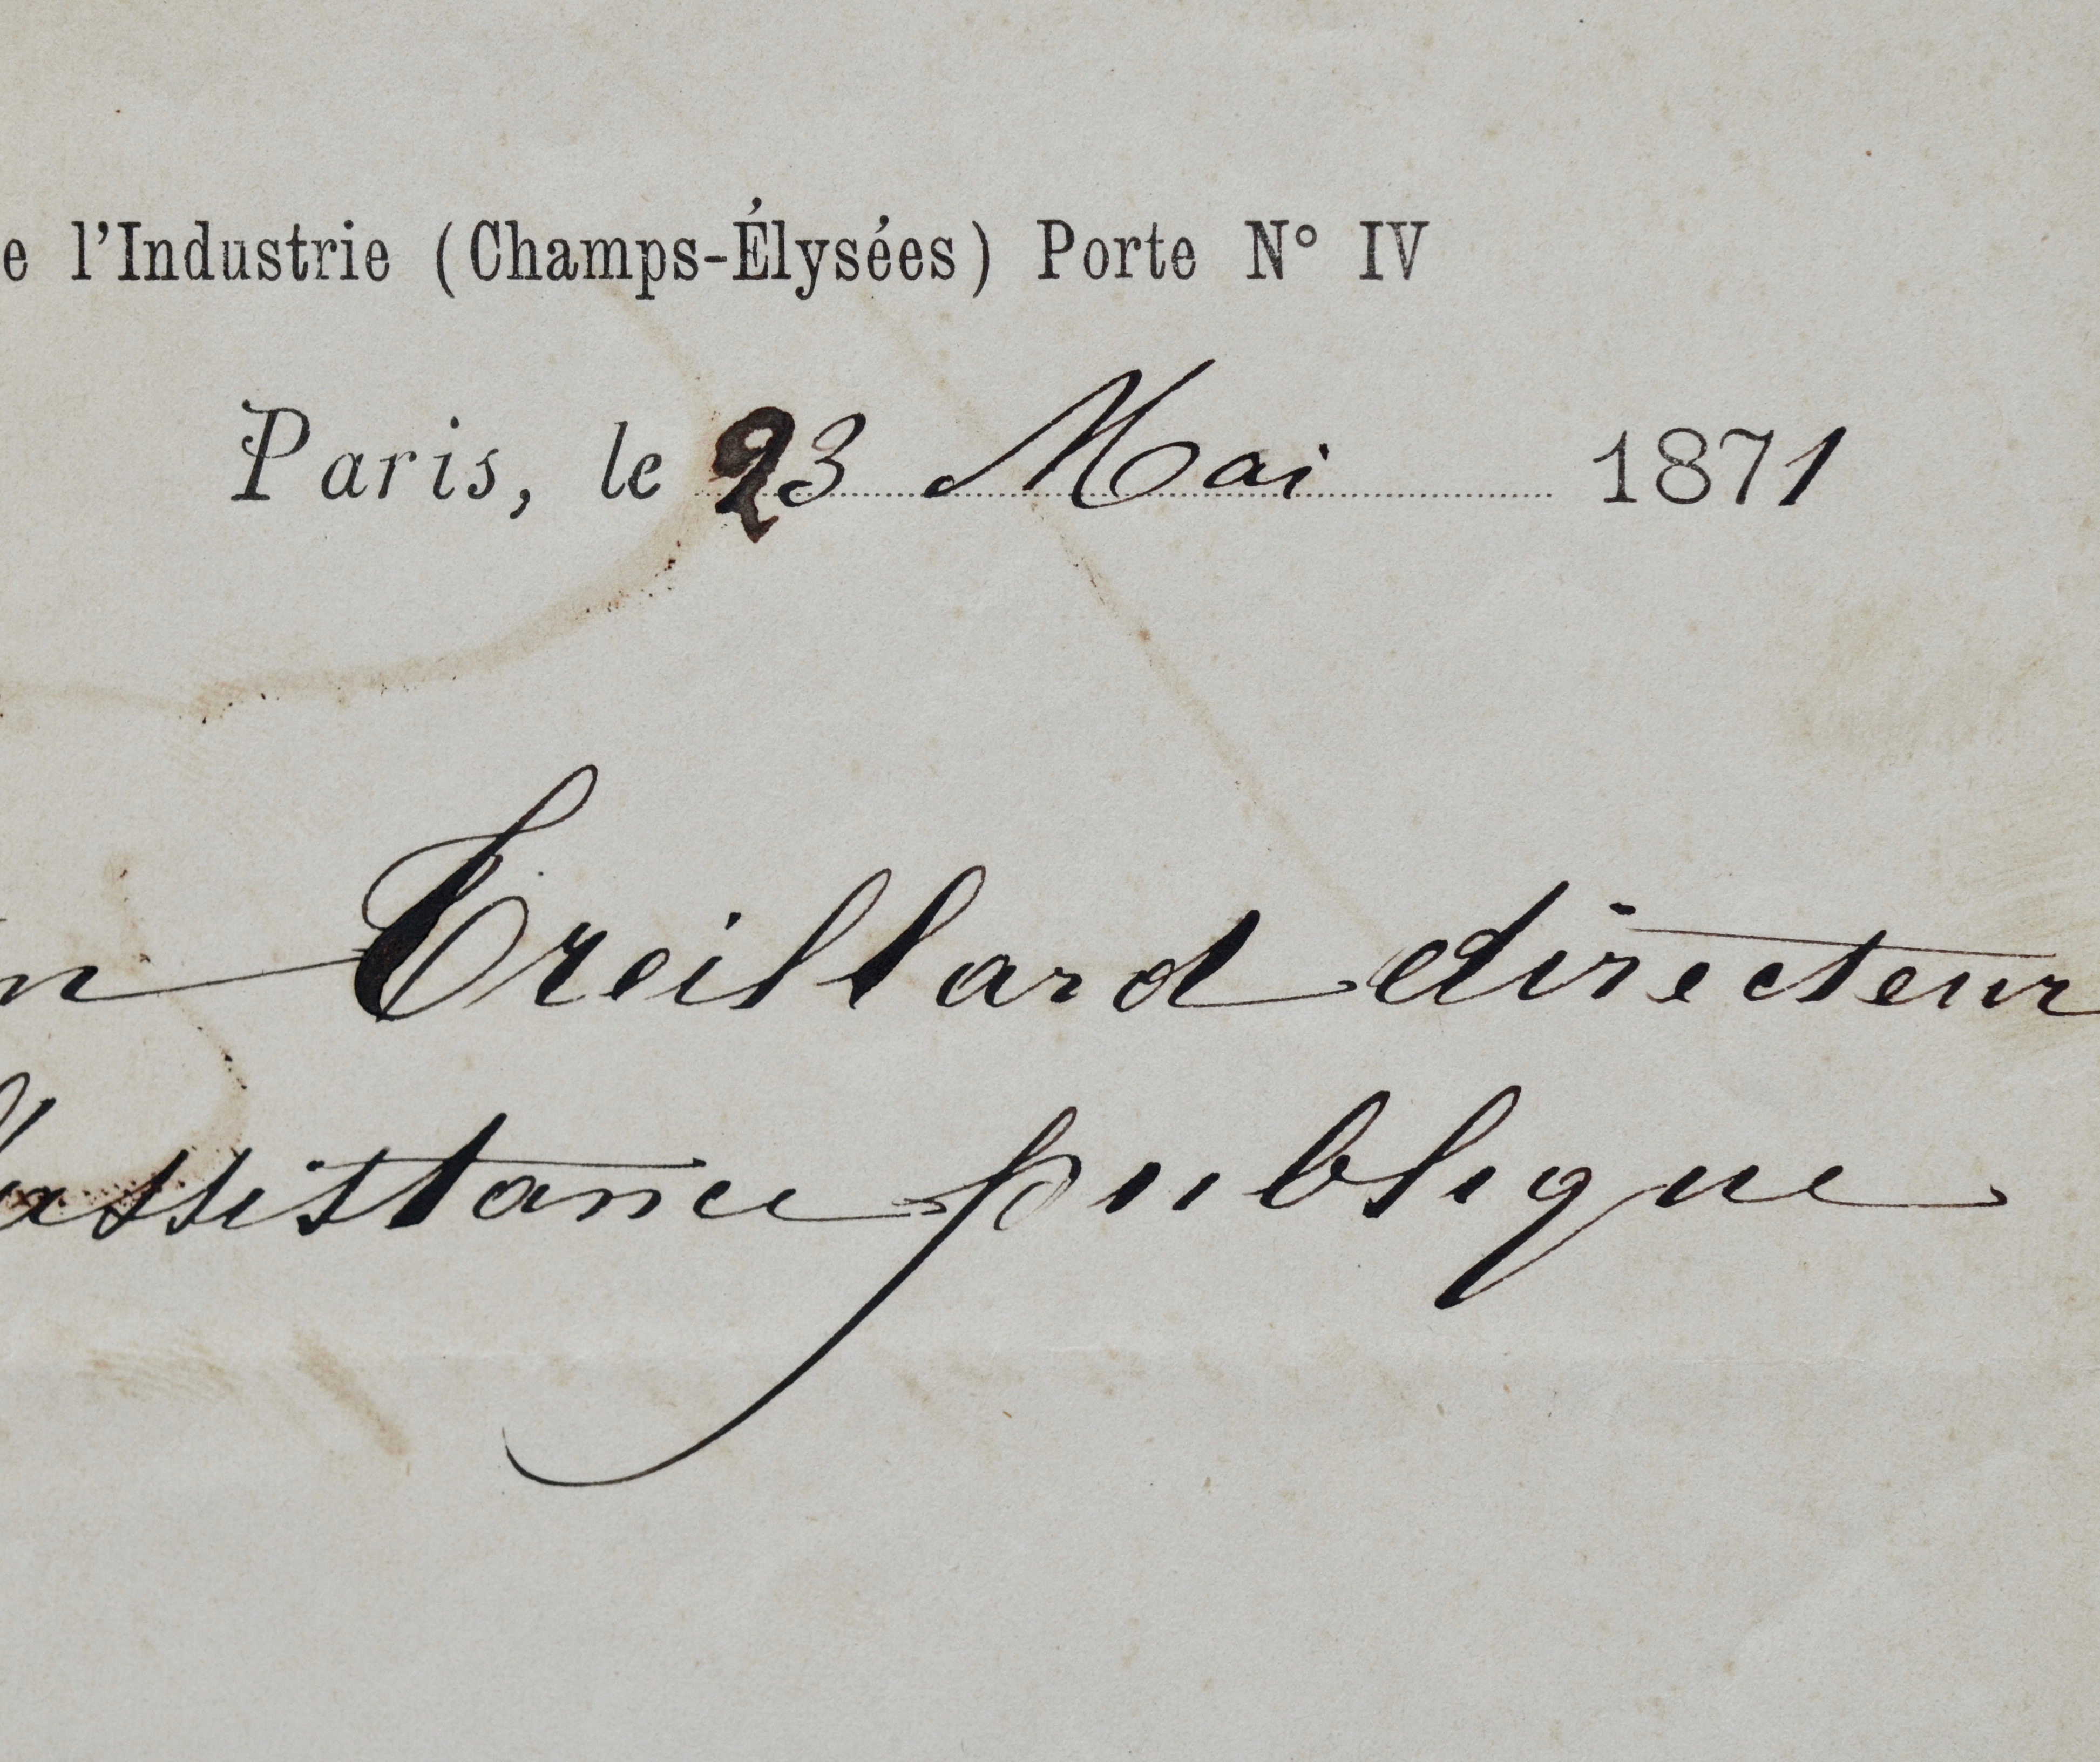 e l'Industrie (Champs-Élysées) Porte N° IV
Paris, le 23 Mai 1871
n Treillard directeur
l'assistance publique